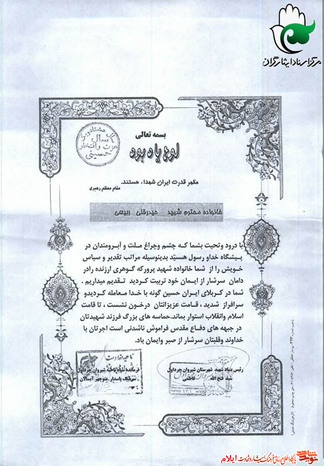 مرکز اسناد ایثارگران
بسمه تعالی
لوح یادبود
سال
حسینی
مظهر قدرت ایران شهداء هستند.
مقام معظم رهبری
خانواده محترم شهید حیدرقلی
با درود وتحیت بشما که چشم وچراغ ملت و آبرومندان در
پیشگاه خداو رسول هستید بدینوسیله مراتب تقدیر و سپاس
خویش را از شما خانواده شهید پرورکه گوهری ارزنده رادر
دامان سرشار از ایمان خود تربیت کردید تقدیم میداریم.
شما در کربلای ایران حسین گونه با خدا معامله کردیدو
سرافراز شدید، قامت عزیزانتان درخون نشست، تا قامت
اسلام وانقلاب استوار بماند.حماسه های بزرگ فرزند شهیدتان
در جبهه های دفاع مقدس فراموش ناشدنی است اجرتان با
خداوند وقلبتان سرشار از صبر وایمان باد.
رئیس بنیاد شهید شهرستان شیروان چرداول
سید فتح الله
فرمانده
شیروان چرداول
ایلام